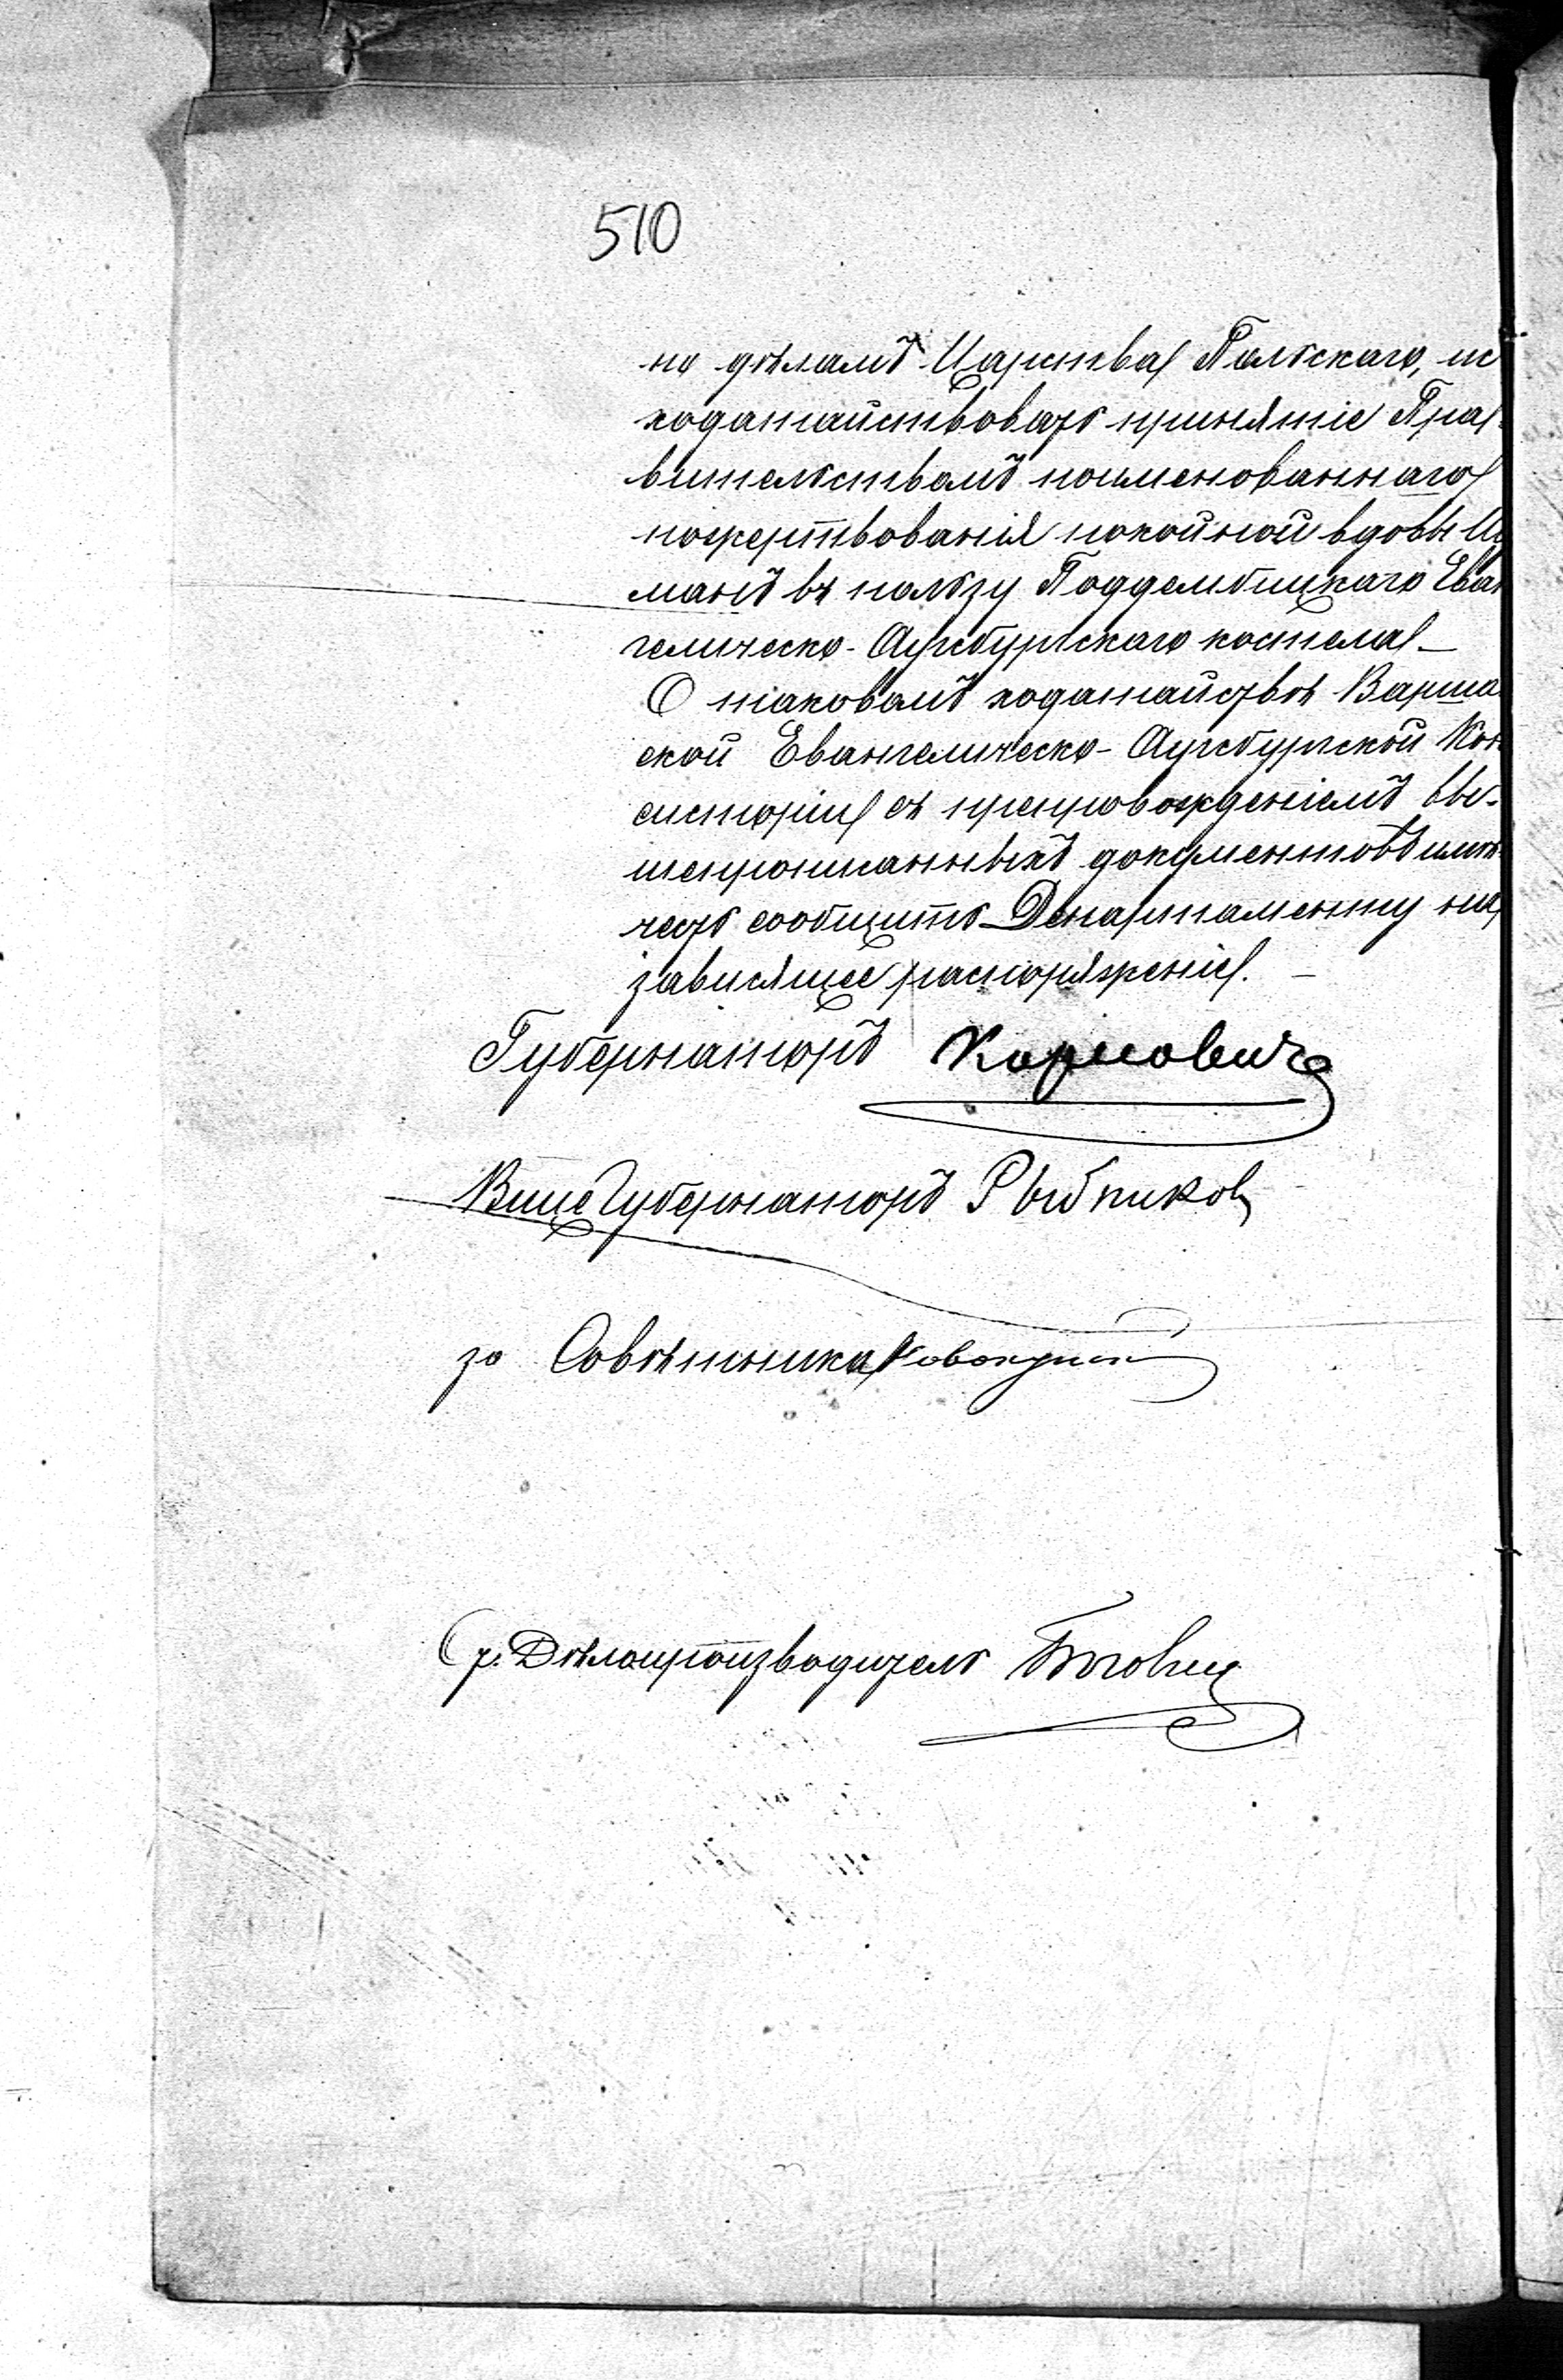 510
по дѣламъ Царства Польскаго, ис
ходатайствовать принятіе Пра-
вительствомъ поименованнаго
пожертвованія покойной вдовы
манъ въ пользу Поддембицкаго Еван
гелическо-Аугсбургскаго костела. —
О таковомъ ходатайствѣ Варша
ской Евангелическо-Аугсбургской Кон
систоріи съ препровожденіемъ вы-
шепрописанныхъ документовъ имѣ
честь сообщить Департаменту на
зависящее распоряженіе. —
Губернаторъ Карновичъ
Вице Губернаторъ Рыбников
за Совѣтника
Ср. Дѣлопроизводитель